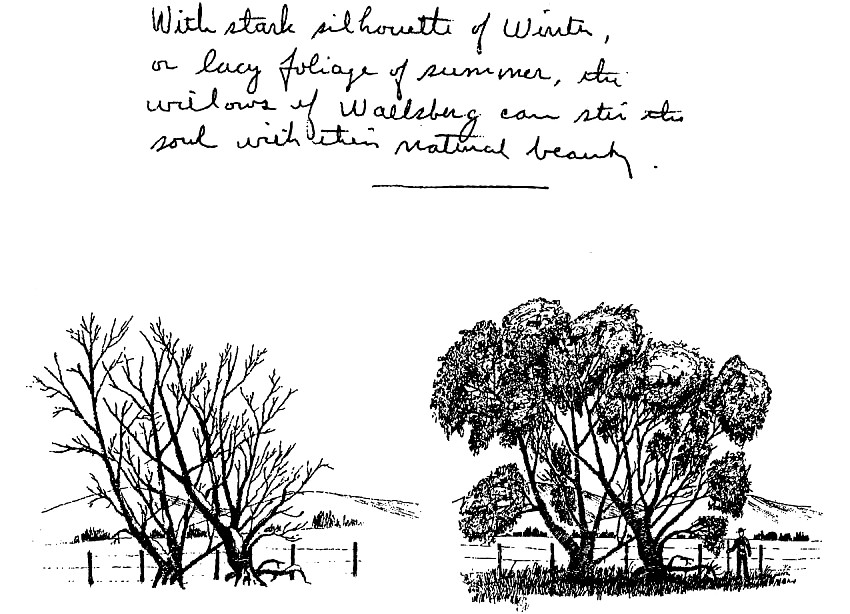 With stark silhouette of Winter,
or lacy foliage of summer, the
willows of Wallsberg can stir the
soul with their natural beauty.